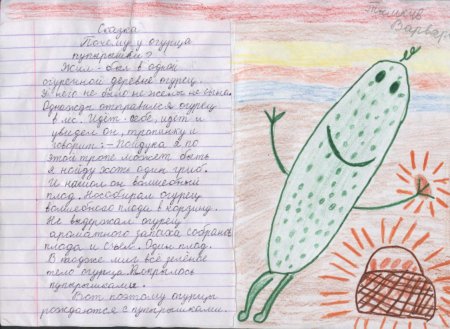 Сказка
Почему у огурца
пупырышки?
Жил-был в одной
огуречной деревне огурец.
У него не было не жены не сына.
Однажды отправился огурец
в лес. Идёт себе, идёт и
увидел он, тропинку и
говорит: - Пойдука я по
этой тропе может быть
я найду хоть один гриб.
И нашол он валшебный
плод. Насобирал огурец
волшебного плода в корзину.
Не выдержал огурец
ароматного запаха собранного
плода и съел. Один плод.
В тоже миг всё зелёное
тело огурца покрылось
пупырышками.
Вот поэтому огурцы
рождаются с пупырышками.
Варвара